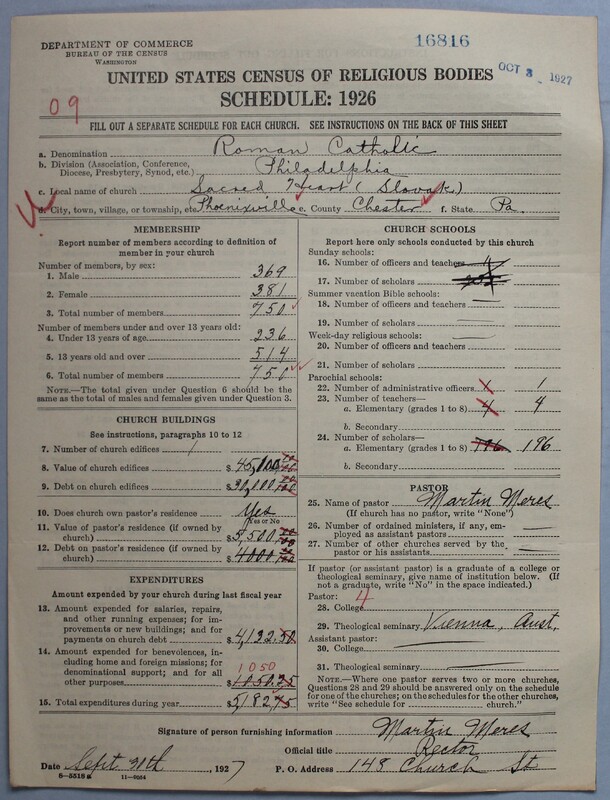 DEPARTMENT OF COMMERCE
BUREAU OF THE CENSUS
WASHINGTON
16816
OCT 3 1927
UNITED STATES CENSUS OF RELIGIOUS BODIES
SCHEDULE: 1926
09
FILL OUT A SEPARATE SCHEDULE FOR EACH CHURCH. SEE INSTRUCTIONS ON THE BACK OF THIS SHEET
a. Denomination Roman Catholic
b. Division (Association, Conference, Diocese, Presbytery, Synod, etc.) Philadelphia
c. Local name of church Sacred Heart (Slovak)
d. City, town, village, or township, etc. Phoenixville e. County Chester f. State Pa.
MEMBERSHIP
Report number of members according to definition of
member in your church
Number of members, by sex:
1. Male 369
2. Female 381
3. Total number of members 750
Number of members under and over 13 years old:
4. Under 13 years of age 236
5. 13 years old and over 514
6. Total number of members 750
NOTE.—The total given under Question 6 should be
same as the total of males and females given under Question 3.
CHURCH BUILDINGS
See instructions, paragraphs 10 to 12
7. Number of church edifices 1
8. Value of church edifices $45,000
9. Debt on church edifices $30,000
10. Does church own pastor's residence? Yes
(Yes or No
11. Value of pastor's residence (if owned by
church) $5,500
12. Debt on pastor's residence (if owned by
church) $4000
EXPENDITURES
Amount expended by your church during last fiscal year
13. Amount expended for salaries, repairs,
and other running expenses; for im-
provements or new buildings; and for
payments on church debt $4,132.50
14. Amount expended for benevolences,
including home and foreign missions; for
denominational support; and for all
other purposes 1050 $1050.25
15. Total expenditures during year $5,182.75
CHURCH SCHOOLS
Report here only schools conducted by this church
Sunday schools:
16. Number of officers and teachers
17. Number of scholars
Summer vacation Bible schools:
18. Number of officers and teachers
19. Number of scholars
Week-day religious schools:
20. Number of officers and teachers
21. Number of scholars
Parochial schools:
22. Number of administrative officers 1
23. Number of teachers—
a. Elementary (grades 1 to 8) 4 4
b. Secondary
24. Number of scholars—
a. Elementary (grades 1 to 8) 196 196
b. Secondary
PASTOR
25. Name of pastor Martin Meres
(If church has no pastor, write "None")
26. Number of ordained ministers, if any, em-
ployed as assistant pastors
27. Number of other churches served by the
pastor or his assistants
If pastor (or assistant pastor) is a graduate of a college or
theological seminary, give name of institution below. (If
not a graduate, write "No" in the space indicated.)
Pastor: 4
28. College
29. Theological seminary Vienna, Aust.
Assistant pastor:
30. College
31. Theological seminary
NOTE.—Where one pastor serves two or more churches,
Questions 28 and 29 should be answered only on the schedule
for one of the churches; on the schedules for the other churches,
write "See schedule for church."
Signature of person furnishing information Martin Meres
Official title Rector
Date Sept. 21th, 1927 P. O. Address 148 Church St
8—5516a 11—9064